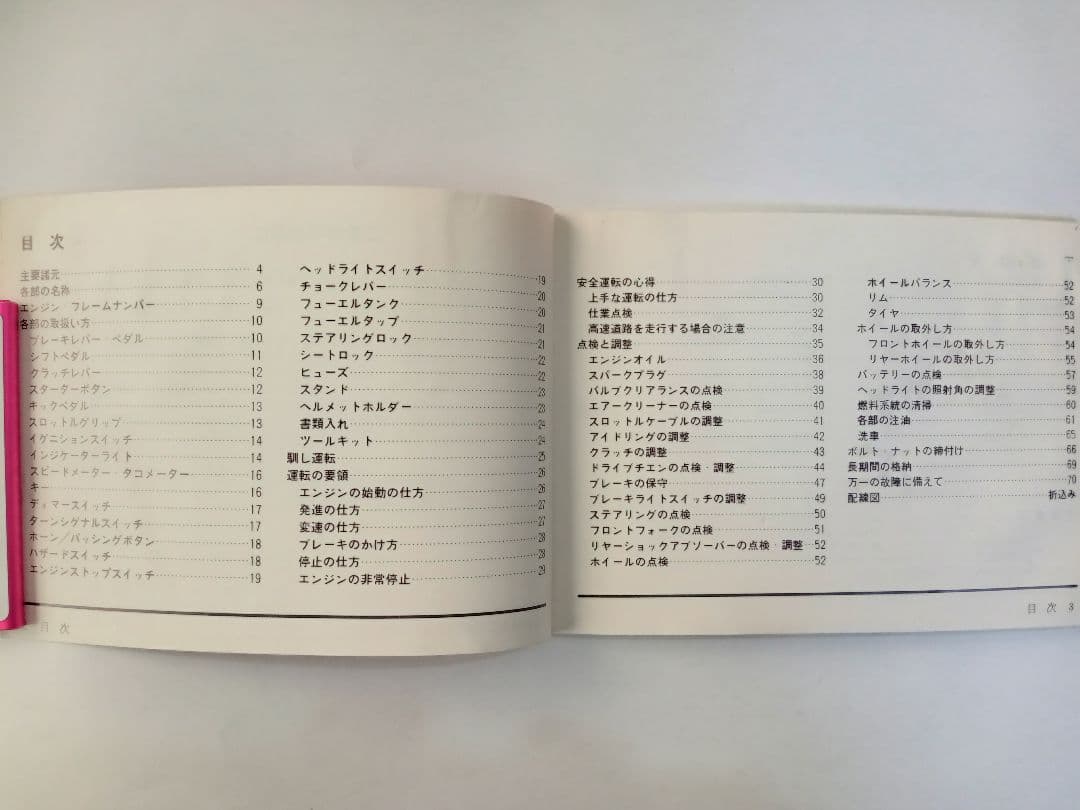 目 次
主要諸元 4
各部の名称 6
エンジン フレームナンバー 9
各部の取扱い方 10
ブレーキレバー ペダル 10
シフトペダル 11
クラッチレバー 12
スターターボタン 12
キックペダル 13
スロットルグリップ 13
イグニションスイッチ 14
インジケーターライト 14
スピードメーター・タコメーター 16
キー 16
ディマースイッチ 17
ターンシグナルスイッチ 17
ホーン/パッシングボタン 18
ハザードスイッチ 18
エンジンストップスイッチ 19
ヘッドライトスイッチ 19
チョークレバー 20
フューエルタンク 20
フューエルタップ 21
ステアリングロック 21
シートロック 22
ヒューズ 22
スタンド 23
ヘルメットホルダー 23
書類入れ 24
ツールキット 24
馴し運転 25
運転の要領 26
エンジンの始動の仕方 26
発進の仕方 27
変速の仕方 27
ブレーキのかけ方 28
停止の仕方 28
エンジンの非常停止 29
目 次
安全運転の心得 30
上手な運転の仕方 30
仕業点検 32
高速道路を走行する場合の注意 34
点検と調整 35
エンジンオイル 36
スパークプラグ 38
バルブクリアランスの点検 39
エアークリーナーの点検 40
スロットルケーブルの調整 41
アイドリングの調整 42
クラッチの調整 43
ドライブチエンの点検・調整 44
ブレーキの保守 47
ブレーキライトスイッチの調整 49
ステアリングの点検 50
フロントフォークの点検 51
リヤーショックアブソーバーの点検・調整 52
ホイールの点検 52
ホイールバランス 52
リム 52
タイヤ 53
ホイールの取外し方 54
フロントホイールの取外し方 54
リヤーホイールの取外し方 55
バッテリーの点検 57
ヘッドライトの照射角の調整 59
燃料系統の清掃 60
各部の注油 61
洗車 65
ボルト・ナットの締付け 66
長期間の格納 69
万一の故障に備えて 70
配線図 折込み
目 次 3